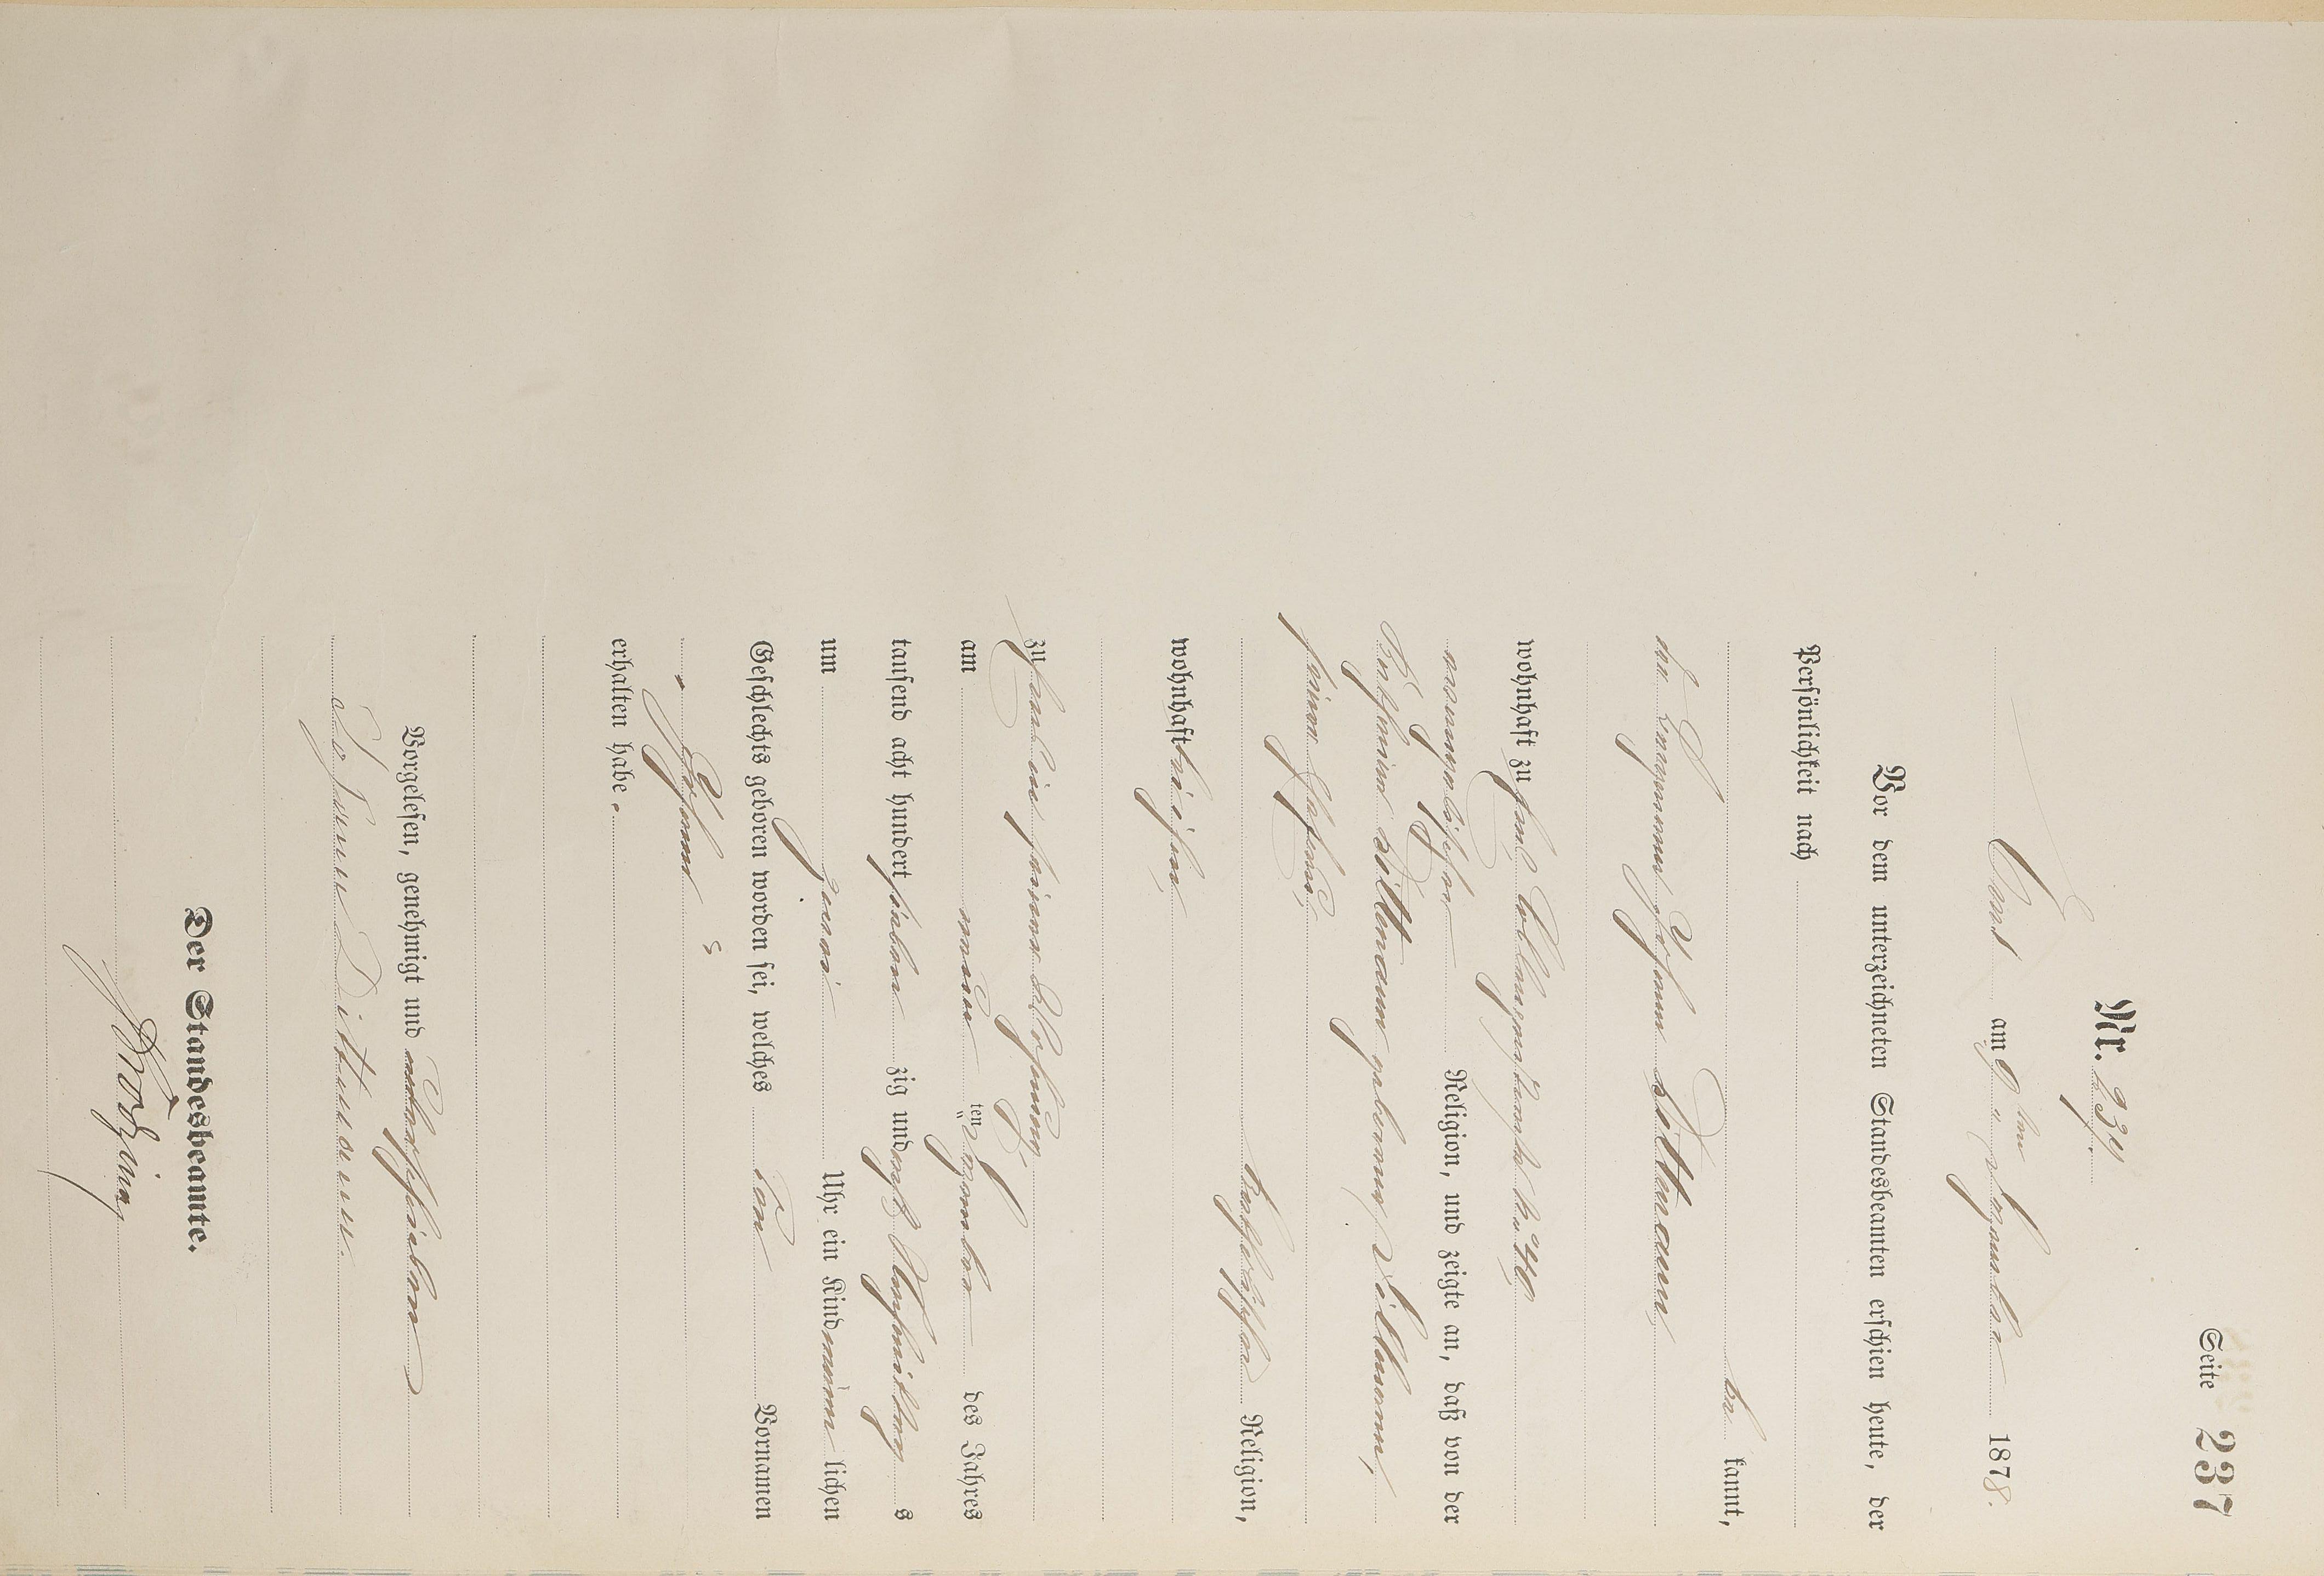 Seite 237
Nr. 237.
am 9ten September 1878.
Vor dem unterzeichneten Standesbeamten erschien heute, der
Persönlichkeit nach
be kannt,
Johann Dittmann,
wohnhaft zu No 40,
evangelischer Religion, und zeigte an, daß von der
Dittmann geborene Dillmann,
seiner Ehefrau,
katholischer Religion,
wohnhaft bei ihm,
zu in seiner Wohnung
am neunten ten September des Jahres
tausend acht hundert sieben zig und acht Vormittags
um zwei Uhr ein Kind männ lichen
Geschlechts geboren worden sei, welches den Vornamen
Johann
erhalten habe.
Vorgelesen, genehmigt und unterschrieben
Johann Dittmann.
Der Standesbeamte.